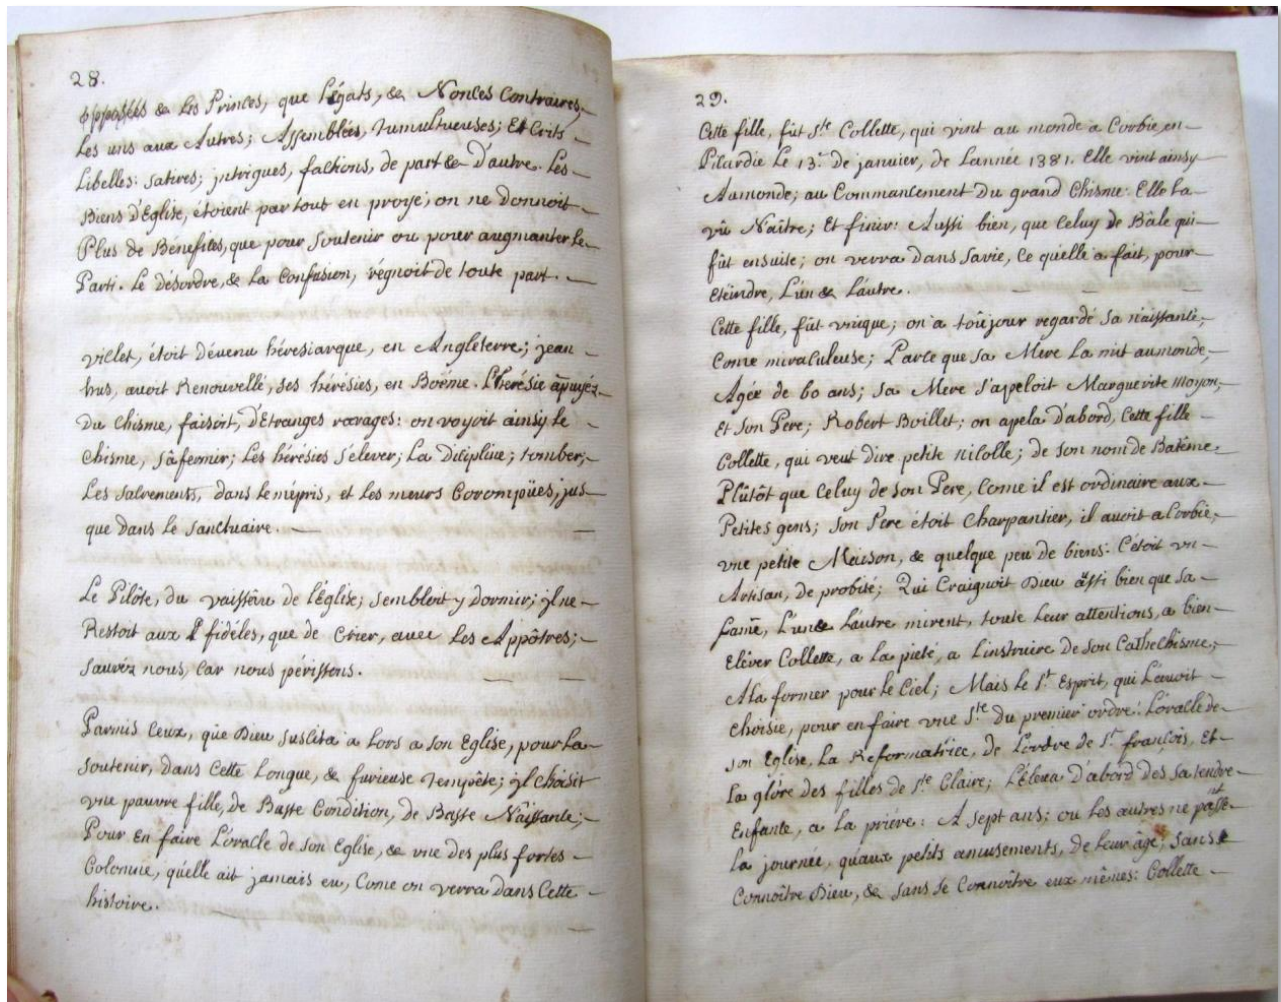 28.
opposées & les Princes, que légats, & Nonces Contraires,
Les uns aux Autres; Assemblées, tumultueuses; Ecrits
Libelles: satires; jntrigues, factions, de part & D'autre. Les
Biens D'Eglise, étoient par tout en proye; on ne Donnoit
Plus de Benefices, que pour soutenir ou pour augmanter Le
Parti. Le désordre, & La Confusion, régnoit de toute part.
viclet, étoit dévenu héresiarque, en Angleterre; jean
hus, avoit Renouvellé, ses hérésies, en Boéme. L'herésie apuyéz
Du Chisme, faisoit, D'Etranges ravages: on voyoit ainsy Le
Chisme, s'afermir; Les hérésies s'élever; La Dicipline; tomber;
Les sacrements, dans le mépris, et les mœurs Corompües, jus
que dans Le sanctuaire.
Le Pilôte, du vaissêau de l'église; sembloit y dormir; jl ne
Restoit aux fidéles, que de Crier, avec Les Appôtres;
sauvéz nous, Car nous périssons.
Parmis Ceux, que Dieu suscita a Lors a son Eglise, pour La
soutenir, dans Cette Longue, & furieuse tempête; jl choisit
vne pauvre fille, de Basse Condition, de Basse Naissance;
Pour En faire L'oracle de son Eglise, & vne des plus fortes
Colomne, qu'elle ait jamais eu, Come on verra dans Cette
histoire.
29.
Cette fille, fût Ste Collette, qui vint au monde a Corbie, en
Picardie Le 13e. de janvier, de L'année 1381. Elle vint ainsy
Aumonde; au Commancement Du grand Chisme: Elle La
vû Naître; Et finir: Aussi bien, que Celuy de Bâle qui
fût ensuite; on verra dans savie, Ce qu'elle a fait, pour
Eteindre, L'un & L'autre.
Cette fille, fût vnique; on a toûjour regardé sa naissance,
Come miraculeuse; Parce que sa Mére La mit aumonde,
Agée de 60 ans; sa Mere s'apeloit Marguerite Moyon,
Et son Pere; Robert Boillet; on apela d'abord, Cette fille
Collette, qui veut dire petite nicolle; de son nom de Batême
Plûtôt que Celuy de son Pere, Come il est ordinaire aux
Petites gens; son Pere étoit Charpantier, il avoit a Corbie,
vne petite Maison, & quelque peu de biens: C'étoit vn
Artisan, de probité; Qui Craignoit Dieu assi bien que sa
fame, L'un & L'autre mirent, toute Leur attentions, a bien
Eléver Collette, a La pieté, a L'instruire de son Cathechisme,
A La former pour le Ciel; Mais le St. Esprit, qui L'avoit
choisie, pour en faire vne Ste. du premier ordre: L'oracle de
son Eglise, La Reformatrice, de L'ordre de St. francois, Et
La glóre des filles de Ste Claire; L'éleva D'abord des sa tendre
Enfance, a La priére: A sept ans; ou Les autres ne passent
La journée, qu'aux petits amusements, de Leur âge; sans
Connoître Dieu, & sans se Connoître eux mêmes: Collette